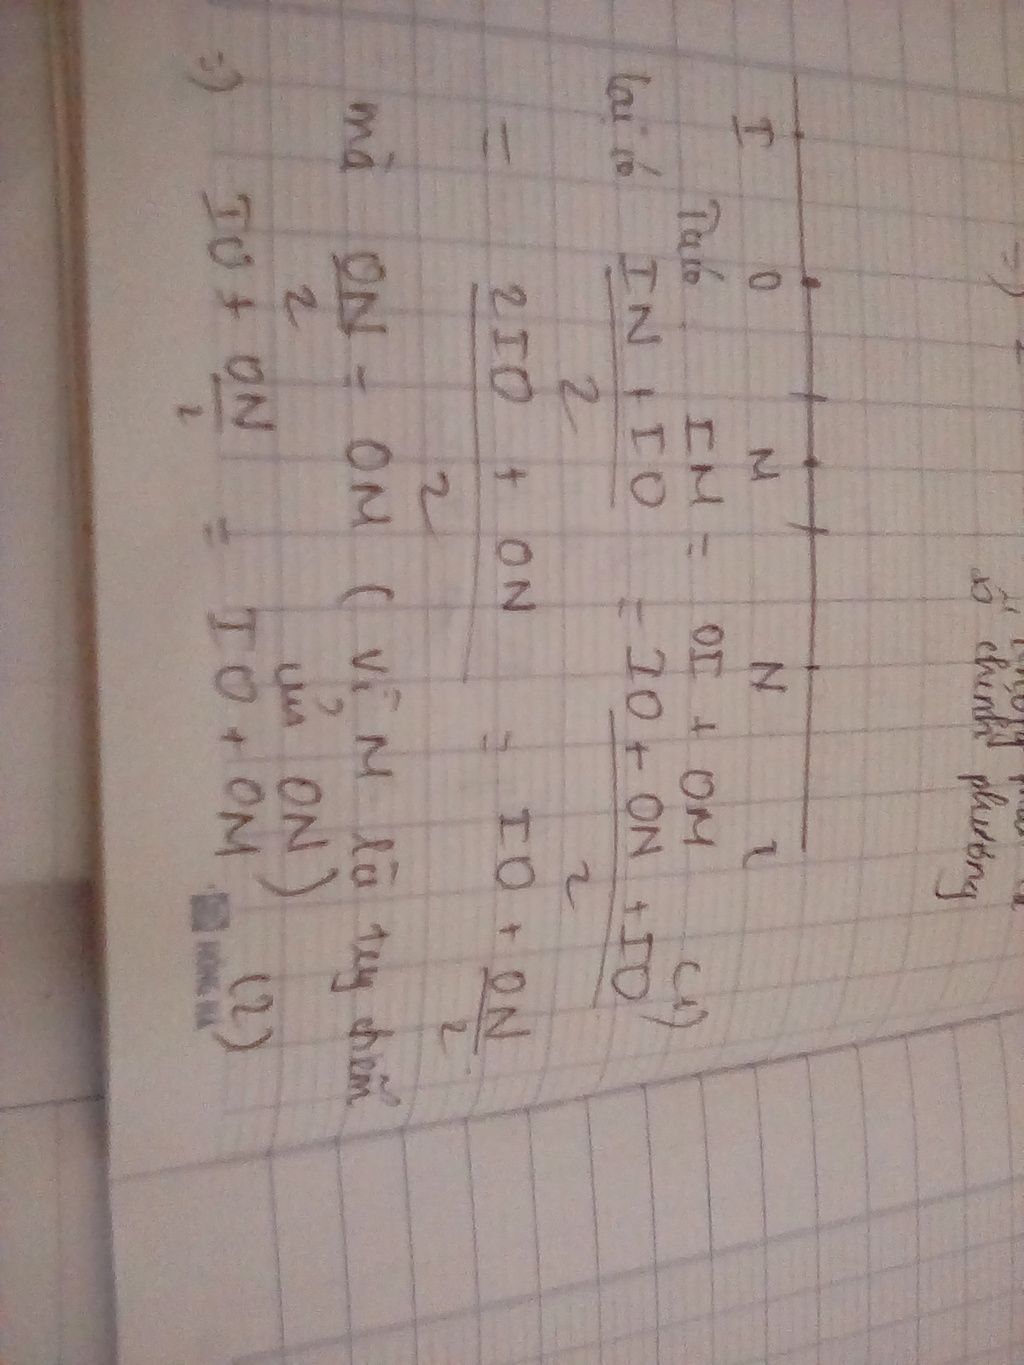 ố chính phương
I O M N 2
Ta có IM = OI + OM (1)
lại có IN + IO / 2 = IO + ON + IO / 2
= 2IO + ON / 2 = IO + ON / 2
mà ON / 2 = OM ( vì M là trung điểm
của ON )
=) IO + ON / 2 = IO + OM (2)